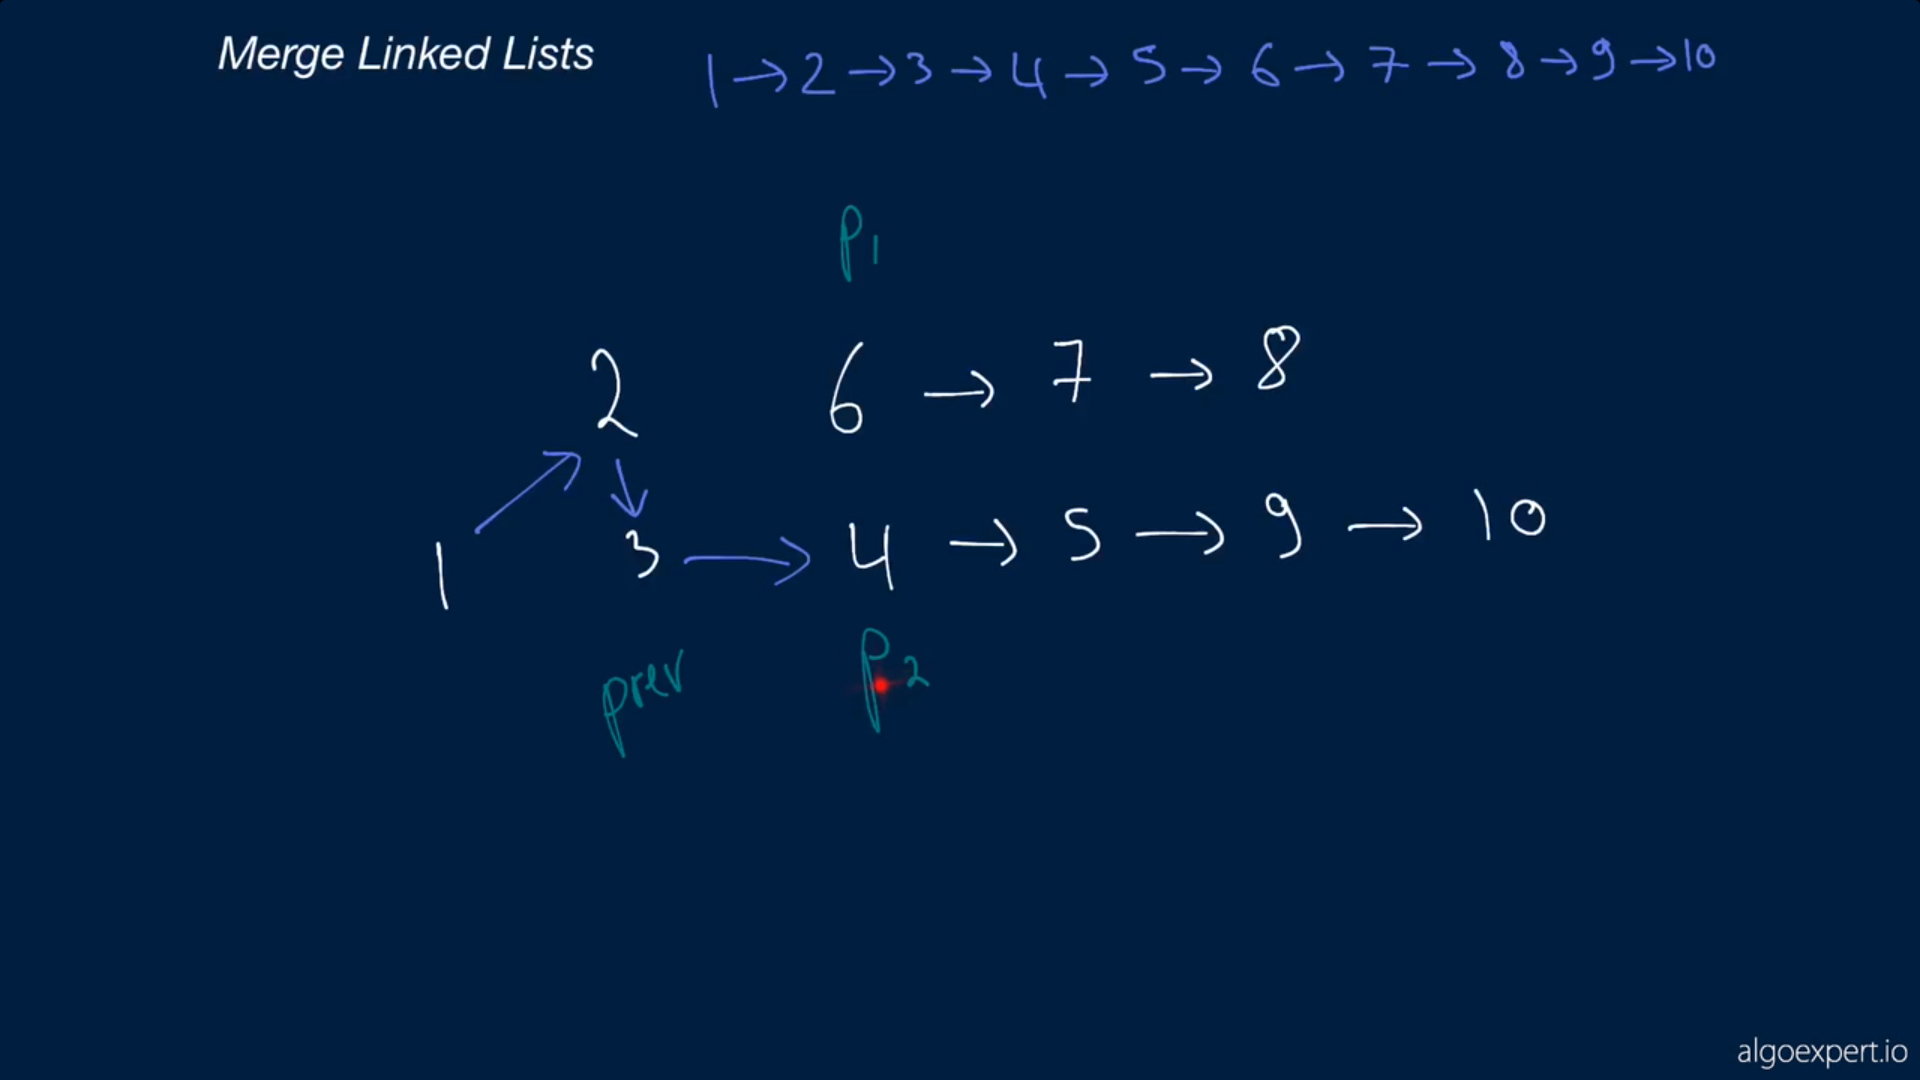 Merge Linked Lists
1 → 2 → 3 → 4 → 5 → 6 → 7 → 8 → 9 → 10
p1
2 6 → 7 → 8
1 3 → 4 → 5 → 9 → 10
prev p2
algoexpert.io